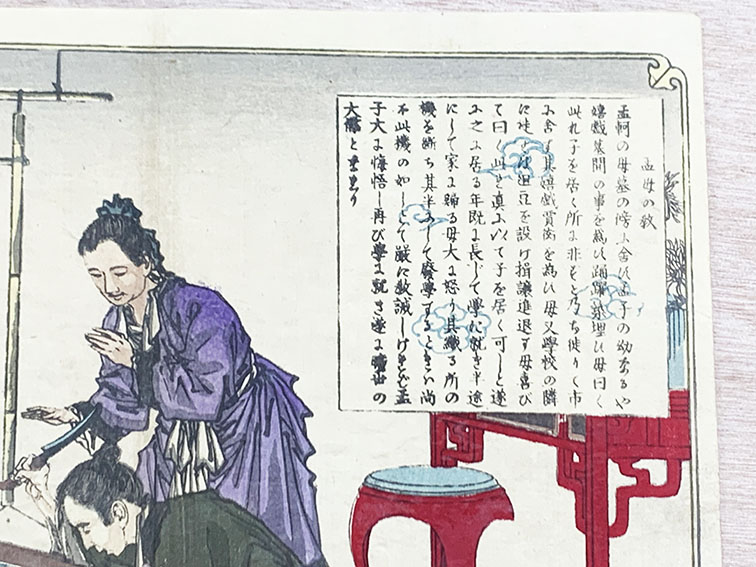 孟母の教
孟軻の母墓の傍に舎す孟子の幼なるや
嬉戯墓間の事を為し踊躍築埋す母曰く
此れ子を居く所に非もと乃ち徙りく市
に舎す其嬉戯賈衒を為す母又学校の隣
に徙る 俎豆を設け揖譲進退す母喜び
て曰く此れ真に以て子を居く可しと遂
に之に居る年既に長じて学に就き半途
にして家に帰る母大に怒り其織る所の
機を断ち其半にして廃学するときハ尚
不此機の如しとて厳に教誡しけれバ孟
子大に悔悟し再び学に就き遂に曠世の
大儒となまり